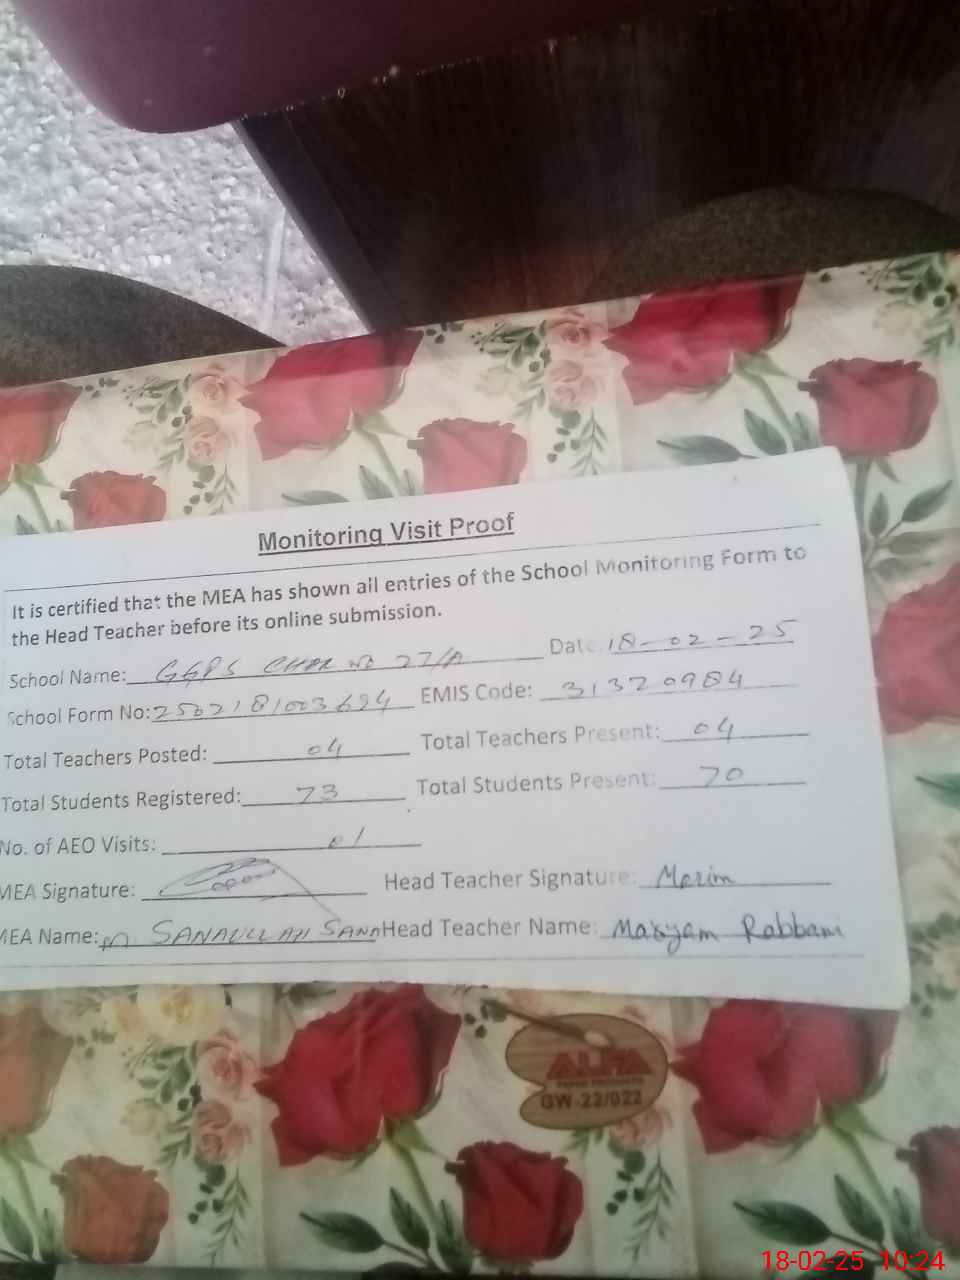 Monitoring Visit Proof
It is certified that the MEA has shown all entries of the School Monitoring Form to
the Head Teacher before its online submission.
School Name: GGPS CHAK NO 27/A Date: 18-02-25
School Form No: 2502181003694 EMIS Code: 31320984
Total Teachers Posted: 04 Total Teachers Present: 04
Total Students Registered: 73 Total Students Present: 70
No. of AEO Visits: 01
MEA Signature: Head Teacher Signature: Merim
MEA Name: M SANAULLAH SANA Head Teacher Name: Maryam Rabbani
ALFA
PAPER PRODUCTS
GW-22/022
18-02-25 10:24